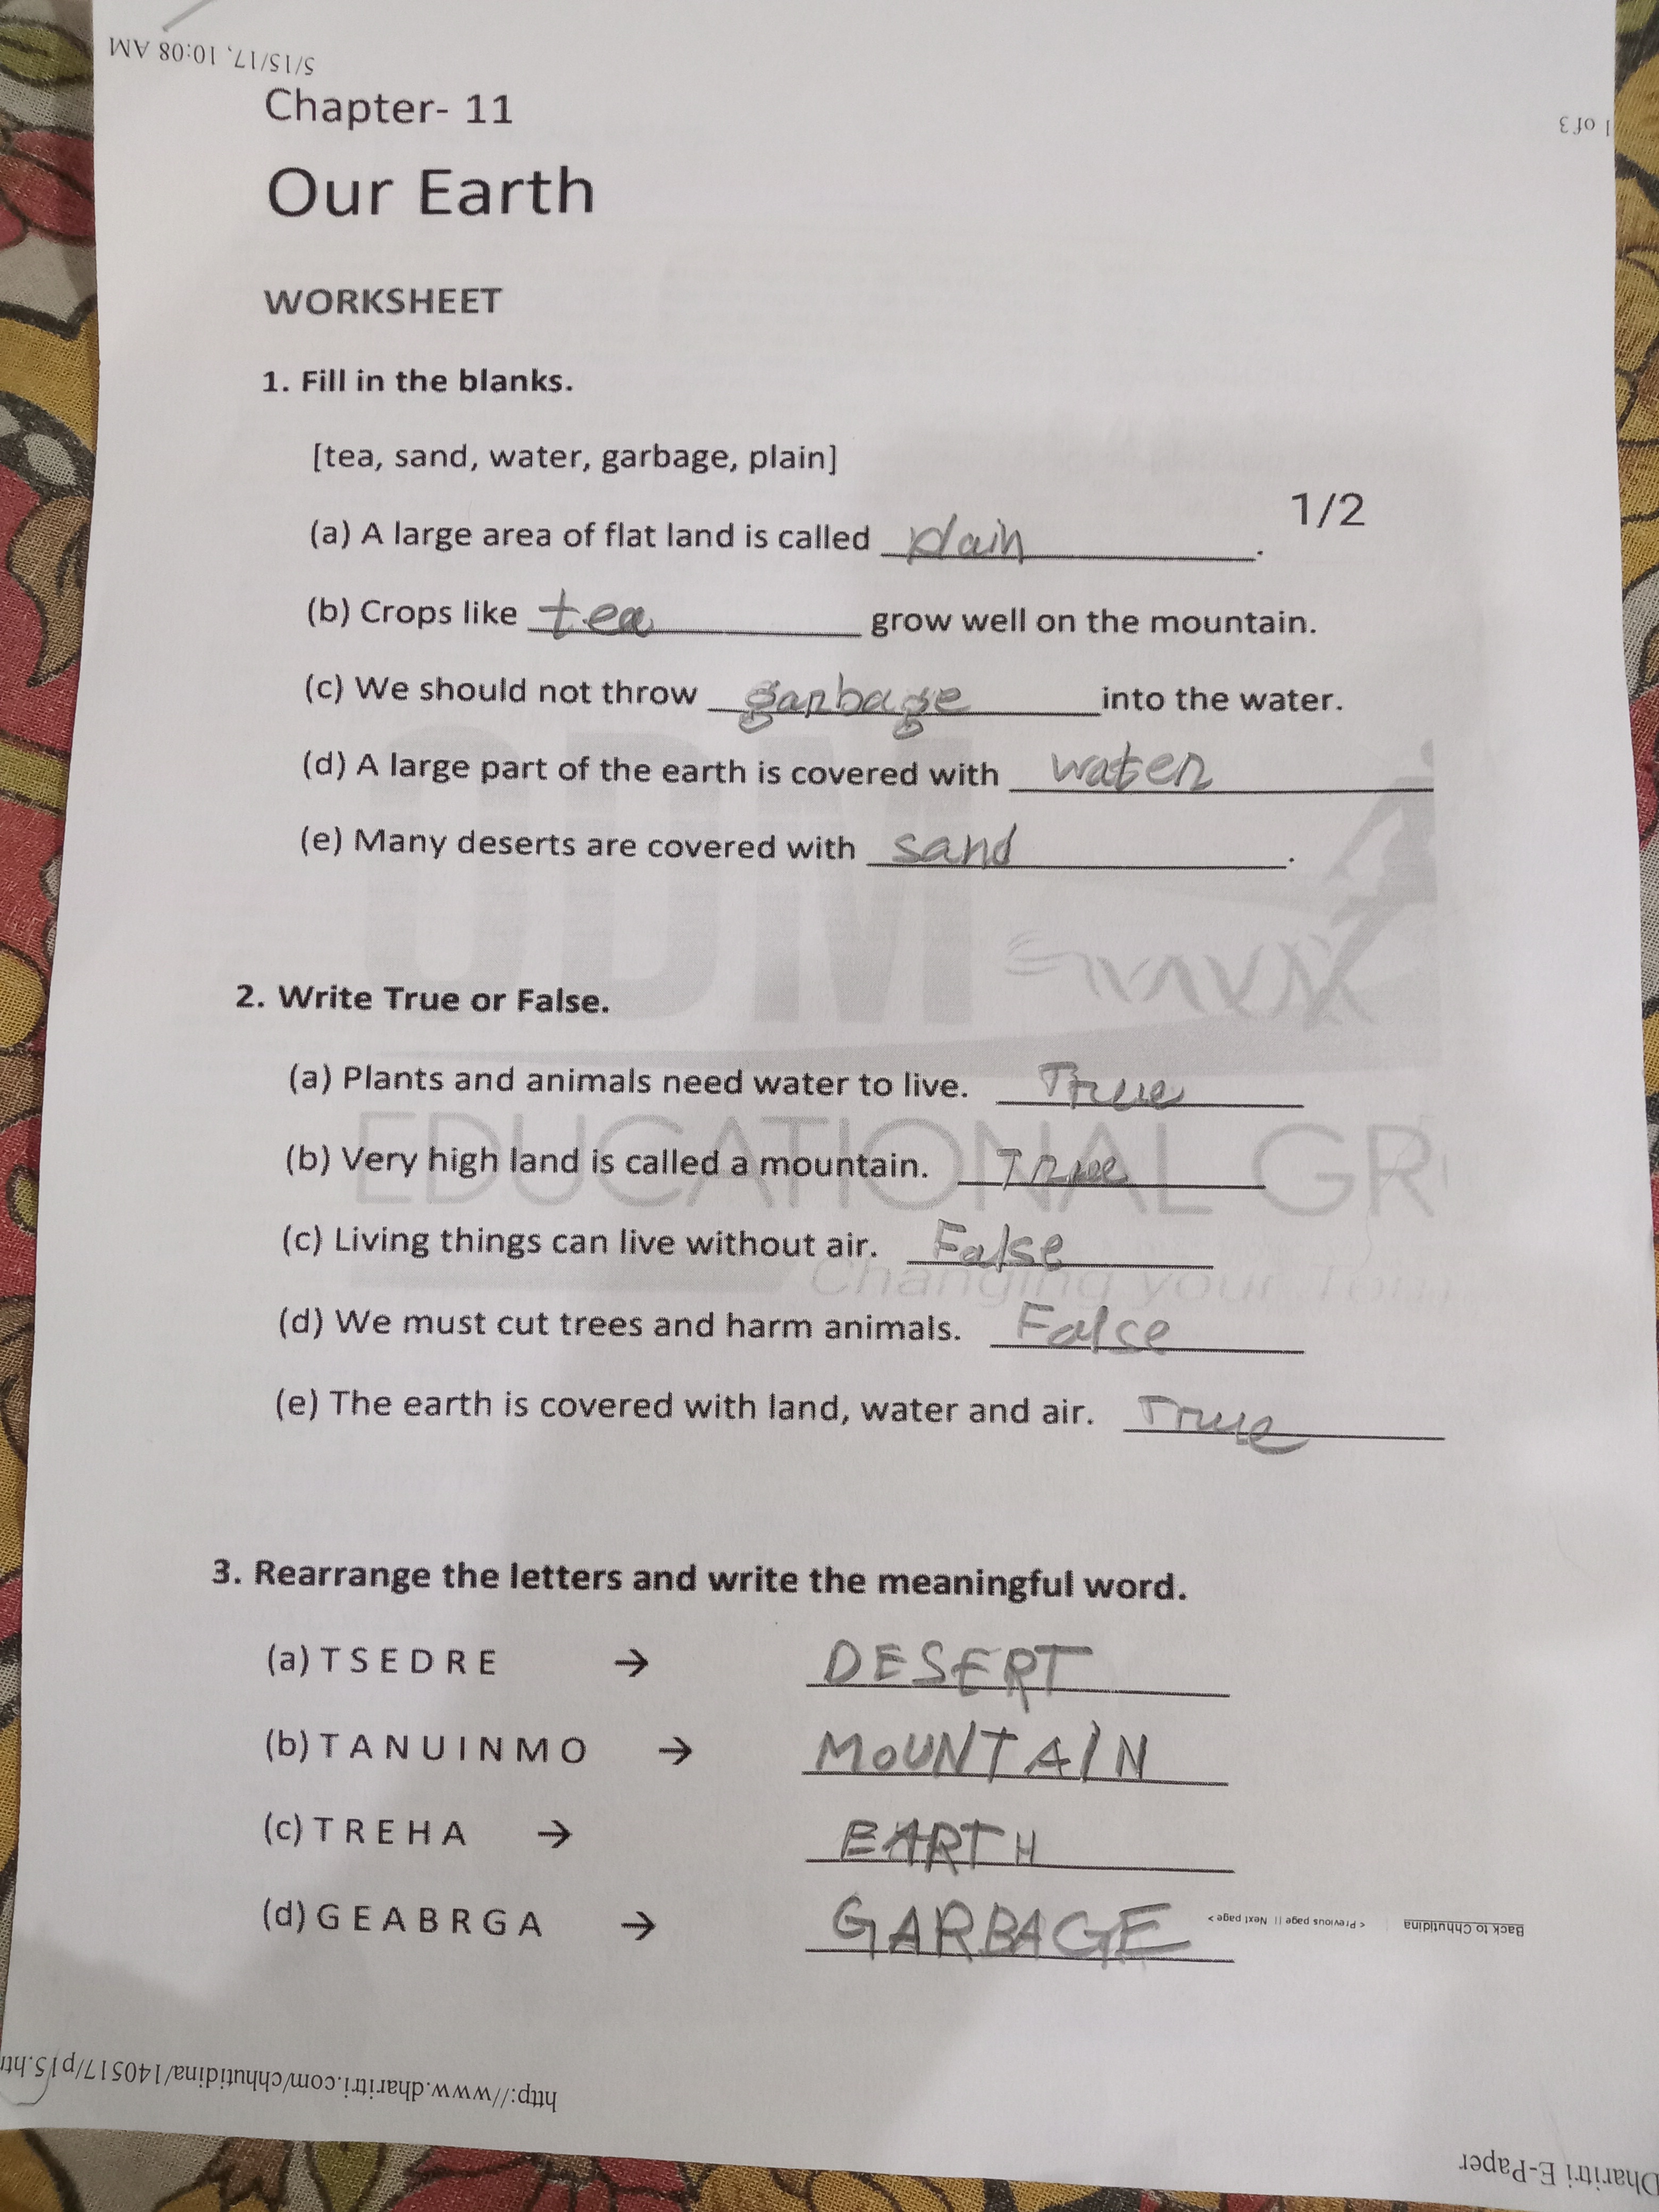 5/15/17, 10:08 AM
1 of 3
Chapter- 11
Our Earth
WORKSHEET
1. Fill in the blanks.
[tea, sand, water, garbage, plain]
1/2
(a) A large area of flat land is called plain.
(b) Crops like tea grow well on the mountain.
(c) We should not throw garbage into the water.
(d) A large part of the earth is covered with water
(e) Many deserts are covered with sand.
ODM
2. Write True or False.
(a) Plants and animals need water to live. True
EDUCATIONAL GR
(b) Very high land is called a mountain. True
(c) Living things can live without air. False
Changing your Tom
(d) We must cut trees and harm animals. False
(e) The earth is covered with land, water and air. True
3. Rearrange the letters and write the meaningful word.
(a) T S E D R E → DESERT
(b) T A N U I N M O → MOUNTAIN
(c) T R E H A → EARTH
(d) G E A B R G A → GARBAGE
Back to Chhutidina < Previous page || Next page >
http://www.dharitri.com/chhutidina/140517/p15.ht
Dharitri E-Paper